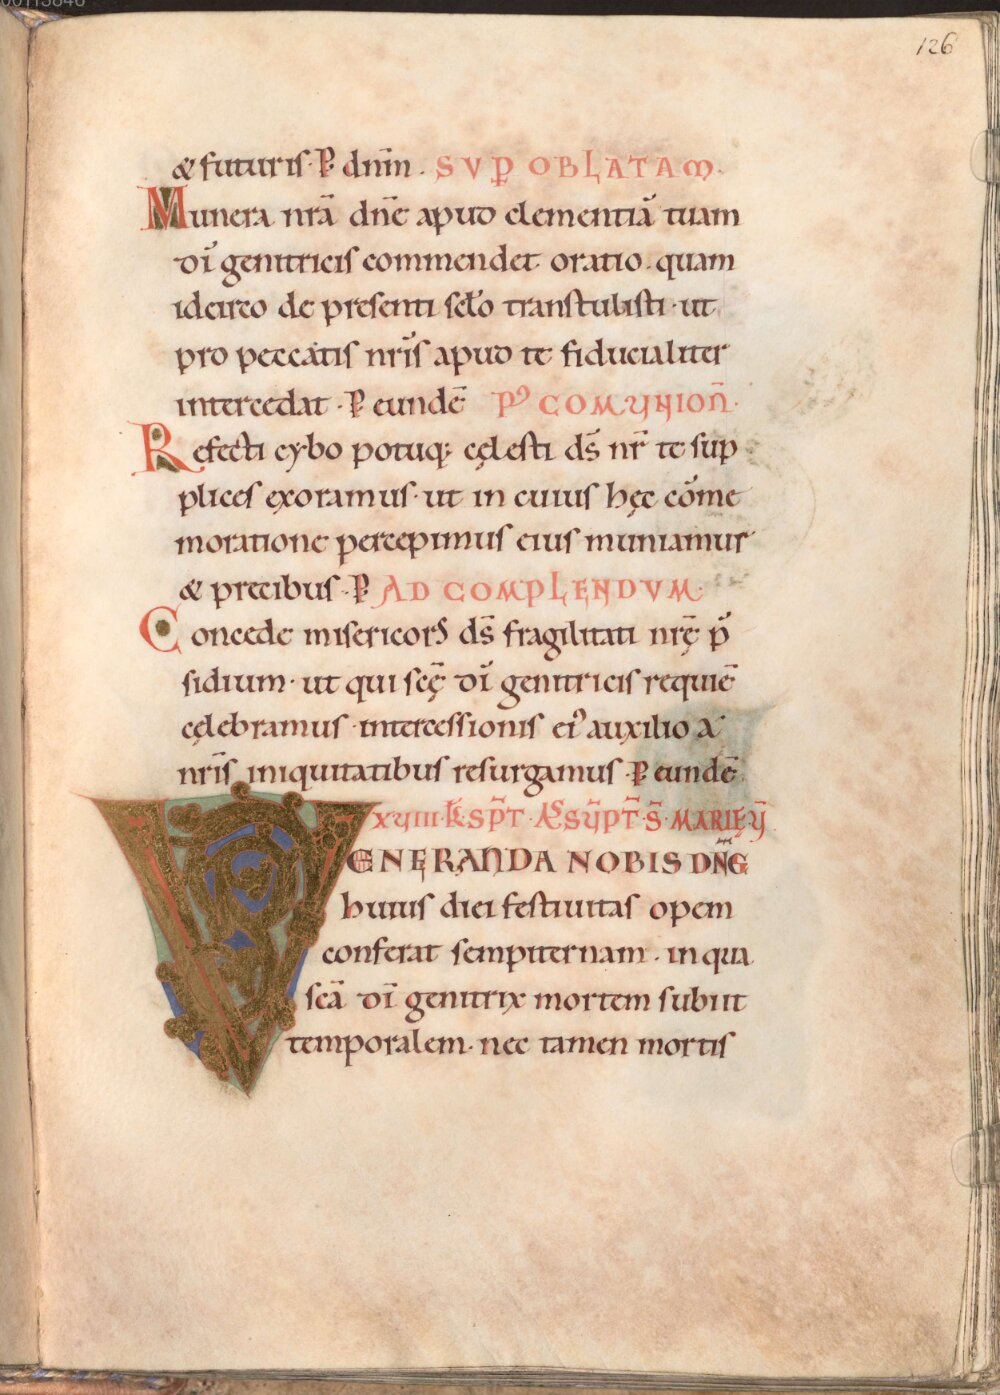 126
& futuris · P̱ dn̄m . SVP̱ OBLATAM .
Munera nr̄a dn̄e apud clementiā tuam
dī genitricis commendet oratio . quam
idcirco de presenti scło transtulisti · ut
pro peccatis nr̄is apud te fiducialiter
intercedat · P̱ eundē P᾿ COMUNION̄ .
Refecti cybo potuq; cęlesti ds̄ nr̄ te sup
plices exoramus · ut in cuius hęc cōme
moratione percepimus eius muniamur
& precibus · P̱ AD COMPLENDVM .
Concede misericors ds̄ fragilitati nr̄ę p̄
sidium · ut qui scę̄ dī genitricis requiē
cęlebramus · intercessionis ei᾿ auxilio a
nr̄is iniquitatibus resurgamus · P̱ eundē
XVIIII · KL̄ · SPT̄ · ASŪPT̄ · S̄ · MARIĘ Ṽ
VENERANDA NOBIS DN̄E
huius diei festiuitas opem
conferat sempiternam . in qua
scā dī genitrix mortem subiit
temporalem . nec tamen mortis